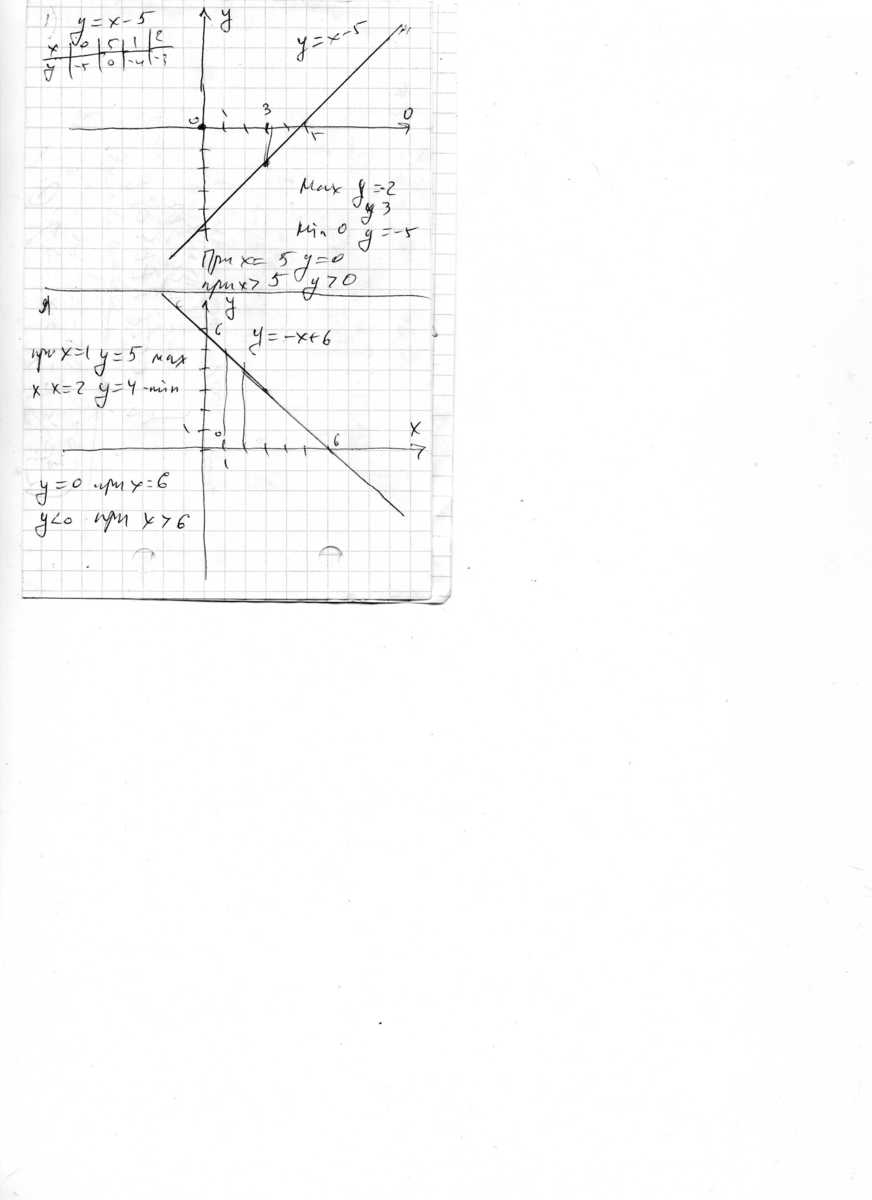 1) y = x - 5
x | 0 | 5 | 1 | 2
y | -5 | 0 | -4 | -3
y
y = x - 5
0 1 3 5 0
Max y = -2
y 3
Min 0 y = -5
При x = 5 y = 0
при x > 5 y > 0
y
6
y = -x + 6
при x = 1 y = 5 max
x x = 2 y = 4 - min
1 0 6 x
1
y = 0 при x = 6
y < 0 при x > 6